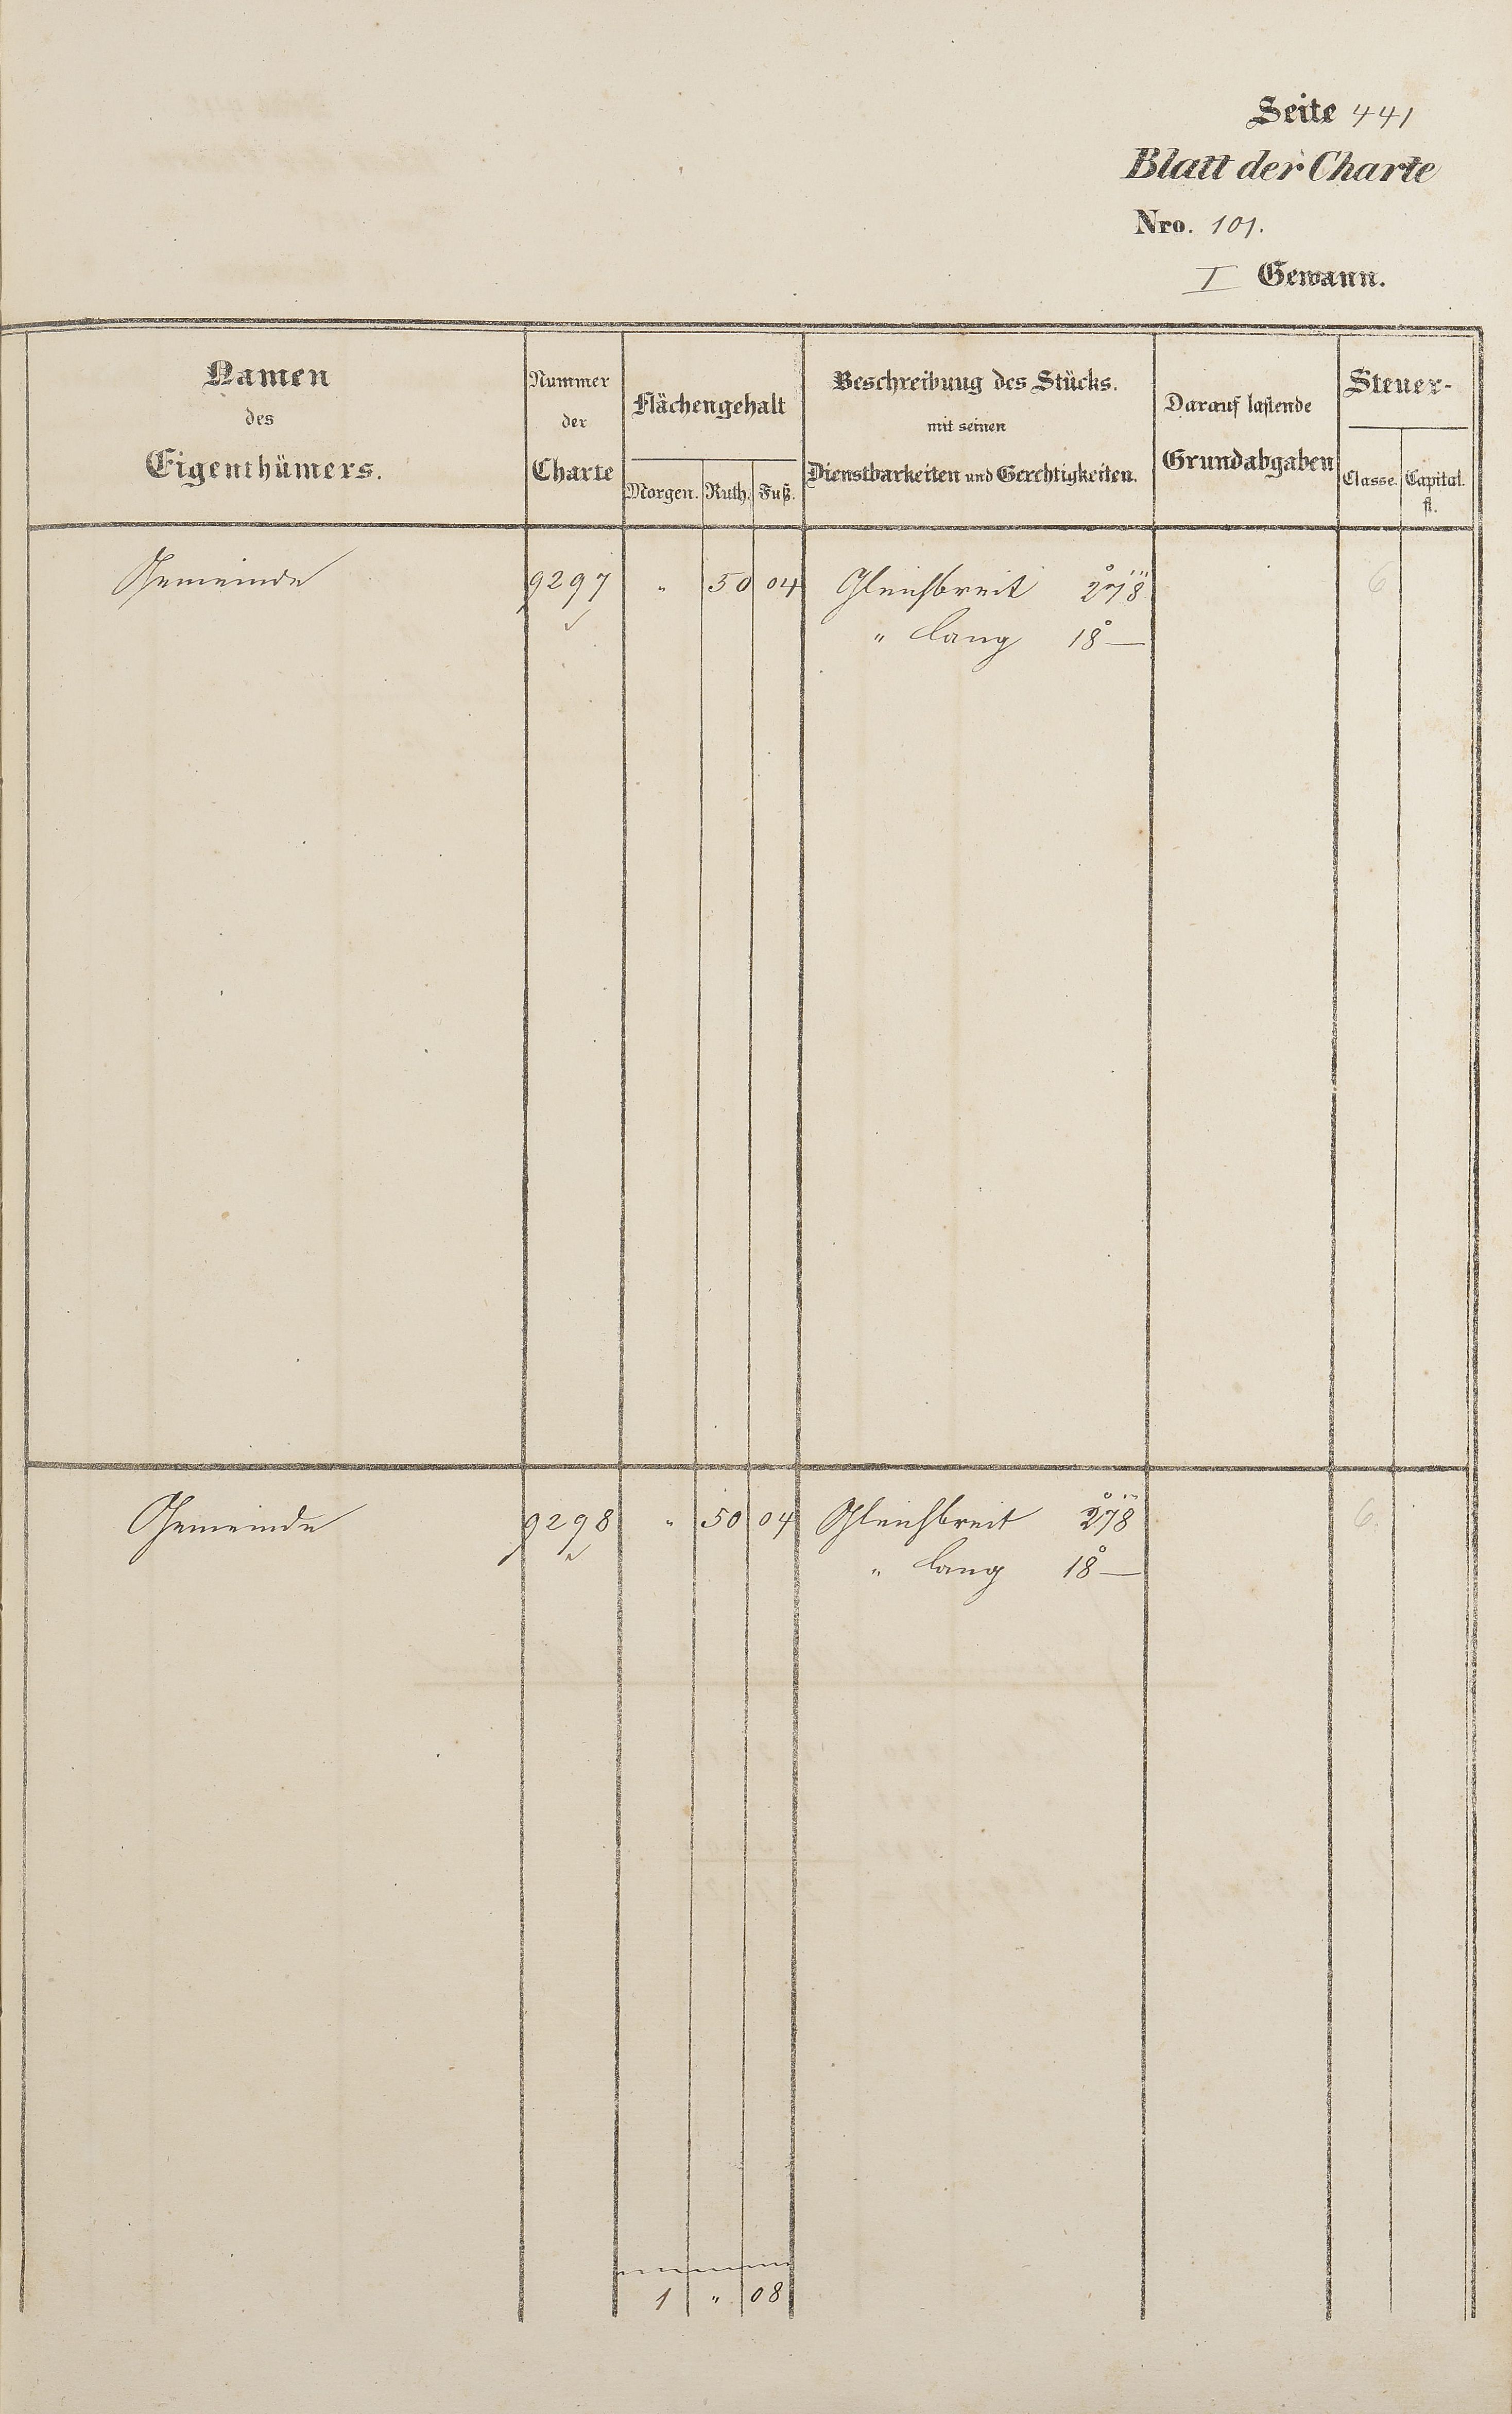 Seite 441
Blatt der Charte
Nro. 101.
I Gewann.
Namen des Eigenthümers.
Nummer der Charte
Flächengehalt
Morgen. Ruth. Fuß.
Beschreibung des Stücks. mit seinen Dienstbarkeiten und Gerechtigkeiten.
Darauf lastende Grundabgaben
Steuer-
Classe. Capital. fl.
Gemeinde 9297 " 50 04 Gleichbreit 2° 7 8 6
" lang 18° —
Gemeinde 9298 " 50 04 Gleichbreit 2° 7 8 6.
" lang 18° —
1 " 08